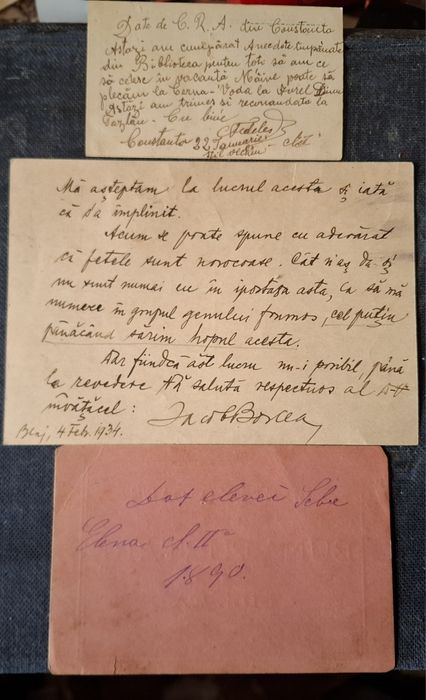 Date de C. R. A. din Constanta
Astăzi am cumpărat Anecdote împănate
din Biblioteca pentru toti să am ce
să citesc în vacantă Mâine poate să
plecăm la Cerna-Voda la Aurel
Astăzi am trimes și recomandata la
Cu bine
Constanta 22 Ianuarie
Stil vechiu
Mă așteptam la lucrul acesta și iată
că s'a împlinit.
Acum se poate spune cu adevărat
că fetele sunt norocoase. Cât n'aș da și
nu sunt numai eu în ipostaza asta, ca să mă
numere în grupul genului frumos, cel puțin
până când sărim hopul acesta.
Dar fiindcă ăst lucru nu-i posibil, până
la revedere Vă salută respectuos al Dv
învățăcel: Jacob
Blaj, 4 Feb. 1934.
Dat elevei
Elena cl. II
1890.